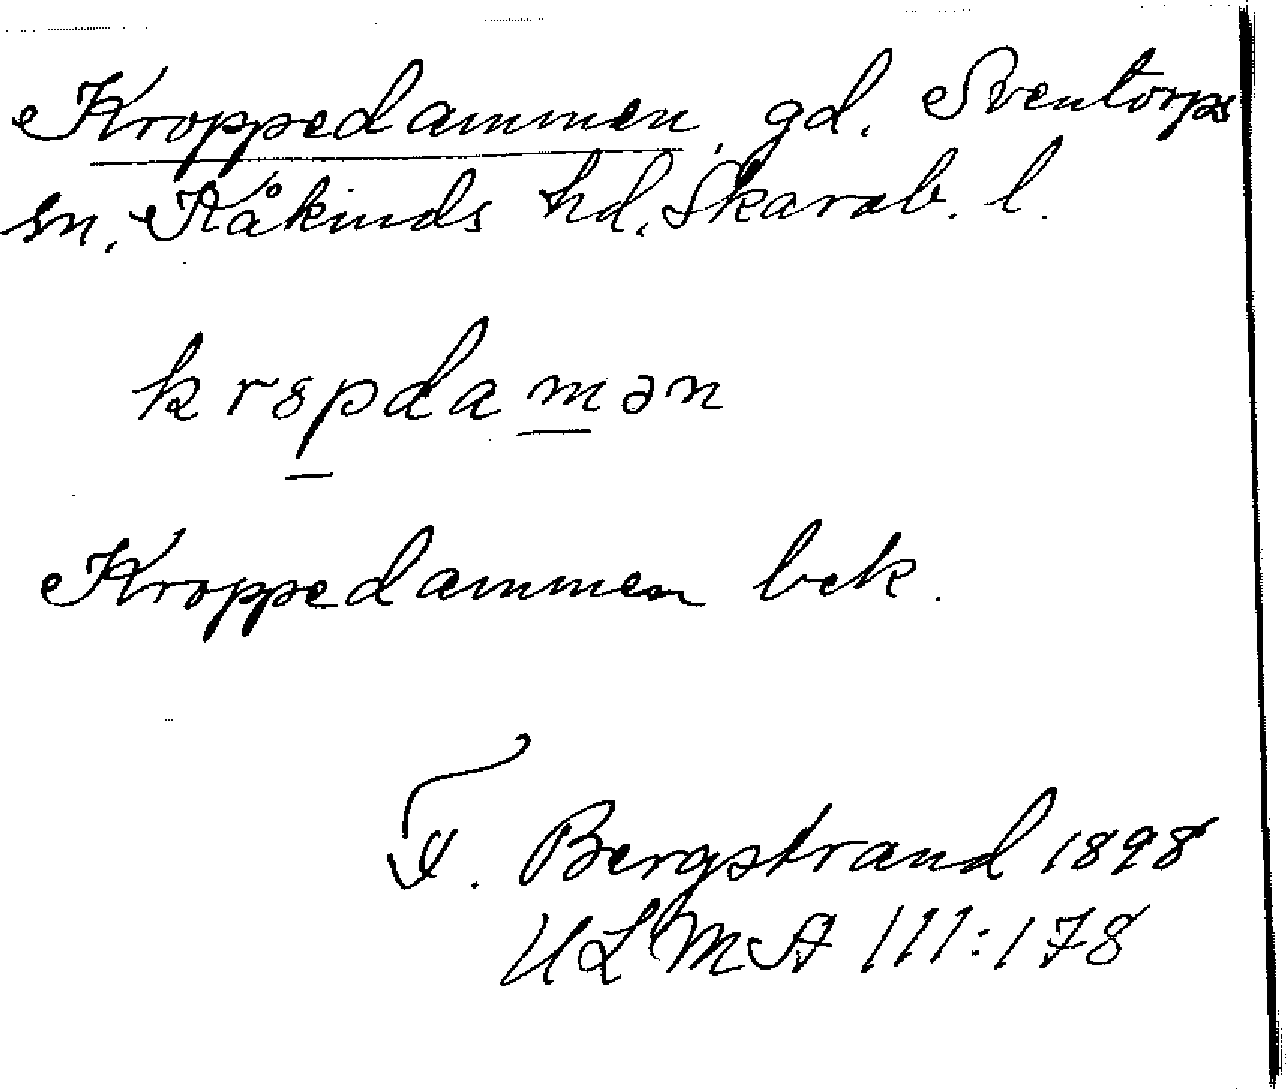 Kroppedammen, gd. Sventorps
sn. Kåkinds hd. Skarab. l.
kr8pdamən
Kroppedammen bek.
F. Bergstrand 1898
ULMA 111:178